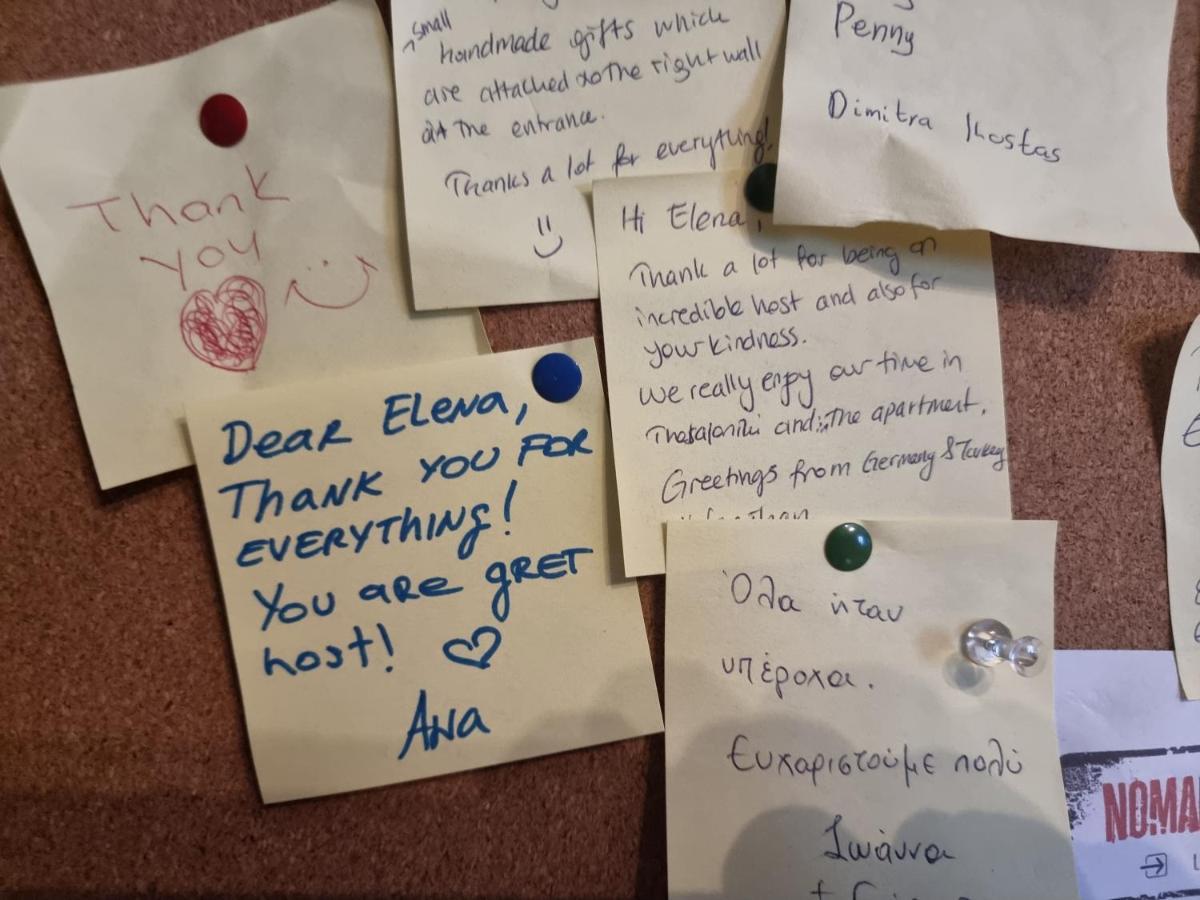 Thank
you
small
handmade gifts which
are attached to the right wall
at the entrance.
Thanks a lot for everything!
Penny
Dimitra Kostas
Hi Elena,
Thank a lot for being an
incredible host and also for
your kindness.
We really enjoy our time in
and the apartment.
Greetings from Germany & Turkey
Dear Elena,
Thank you for
everything!
You are gret
host!
Ana
Όλα ήταν
υπέροχα.
Ευχαριστούμε πολύ
Ιωάννα
NOMA